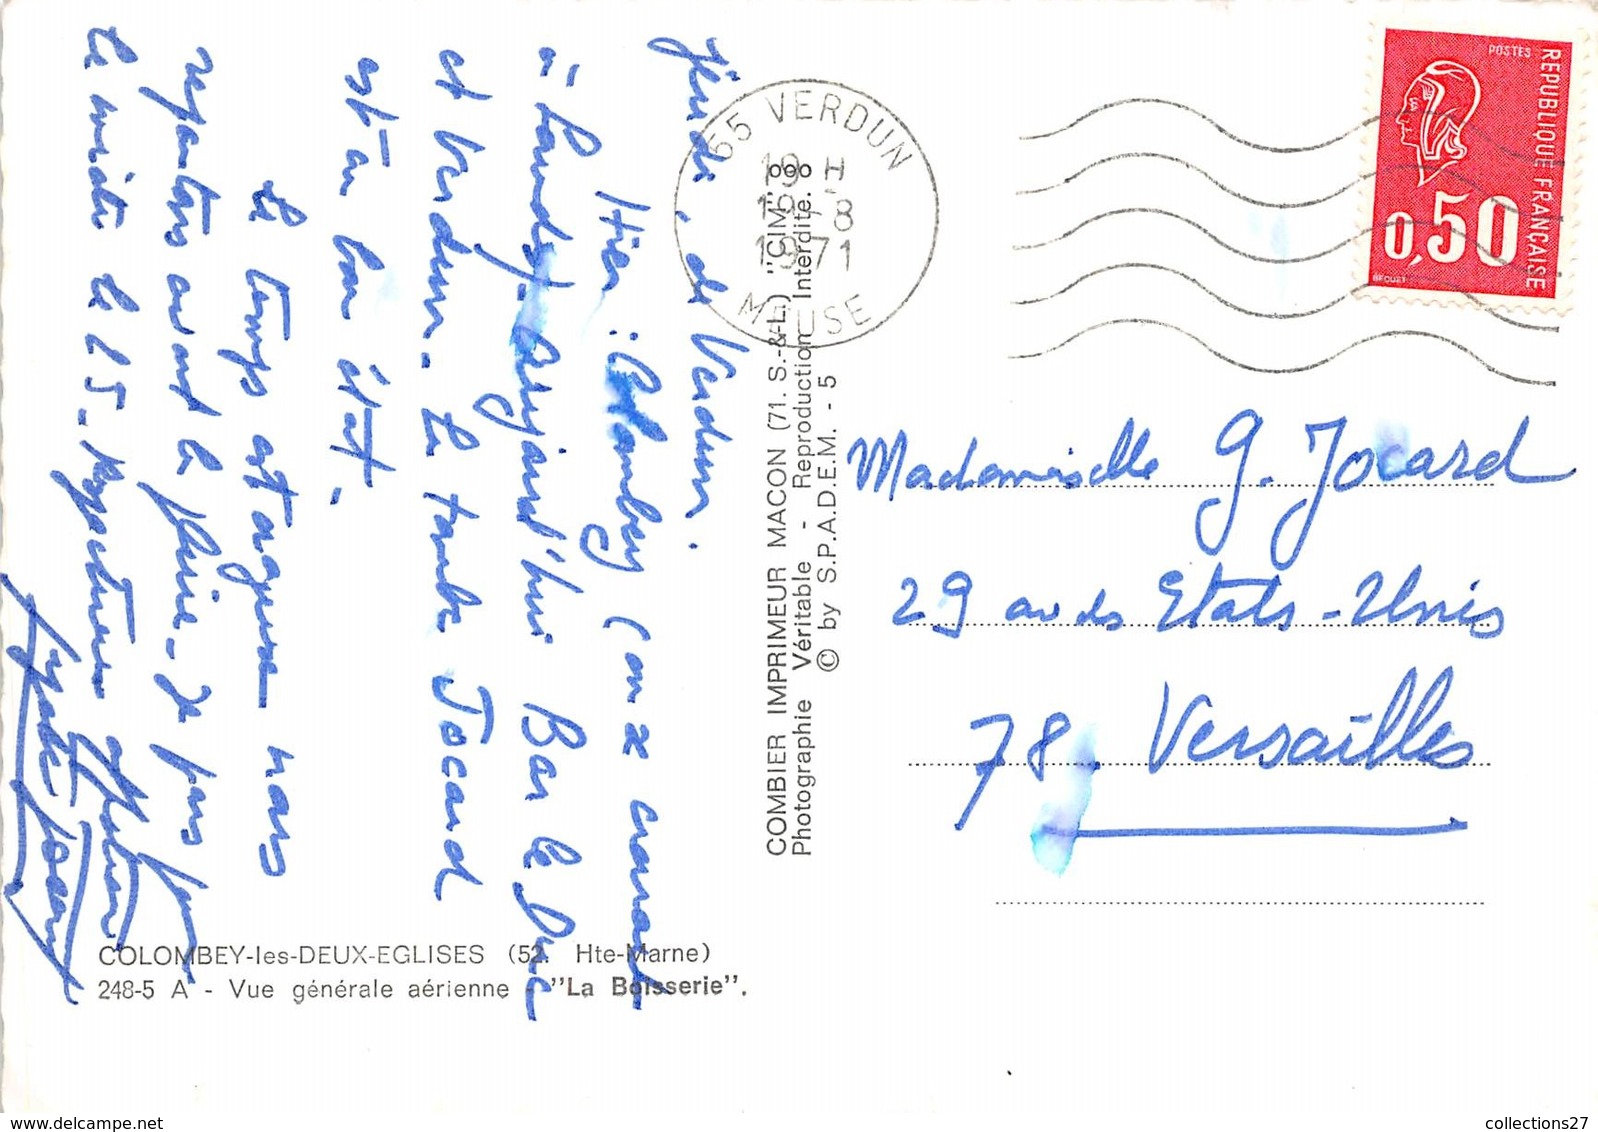 Jeudi, de Verdun.
Hier : Colombey (on x
à Landry. Aujourd'hui Bar le Duc
et Verdun. La tombe Jocard
est en bon état.
Le temps est nous
repartons avant la pluie.
le 15.
COLOMBEY-les-DEUX-EGLISES (52. Hte-Marne)
248-5 A - Vue générale aérienne - "La Boisserie".
COMBIER IMPRIMEUR MACON (71. S.-&-L.) "CIM"
Photographie Véritable - Reproduction Interdite.
© by S.P.A.D.E.M. - 5
55 VERDUN
19 H
19-8
1971
MEUSE
POSTES
REPUBLIQUE FRANÇAISE
0,50
BEQUET
Mademoiselle G. Jocard
29 av des Etats-Unis
78. Versailles
collections27